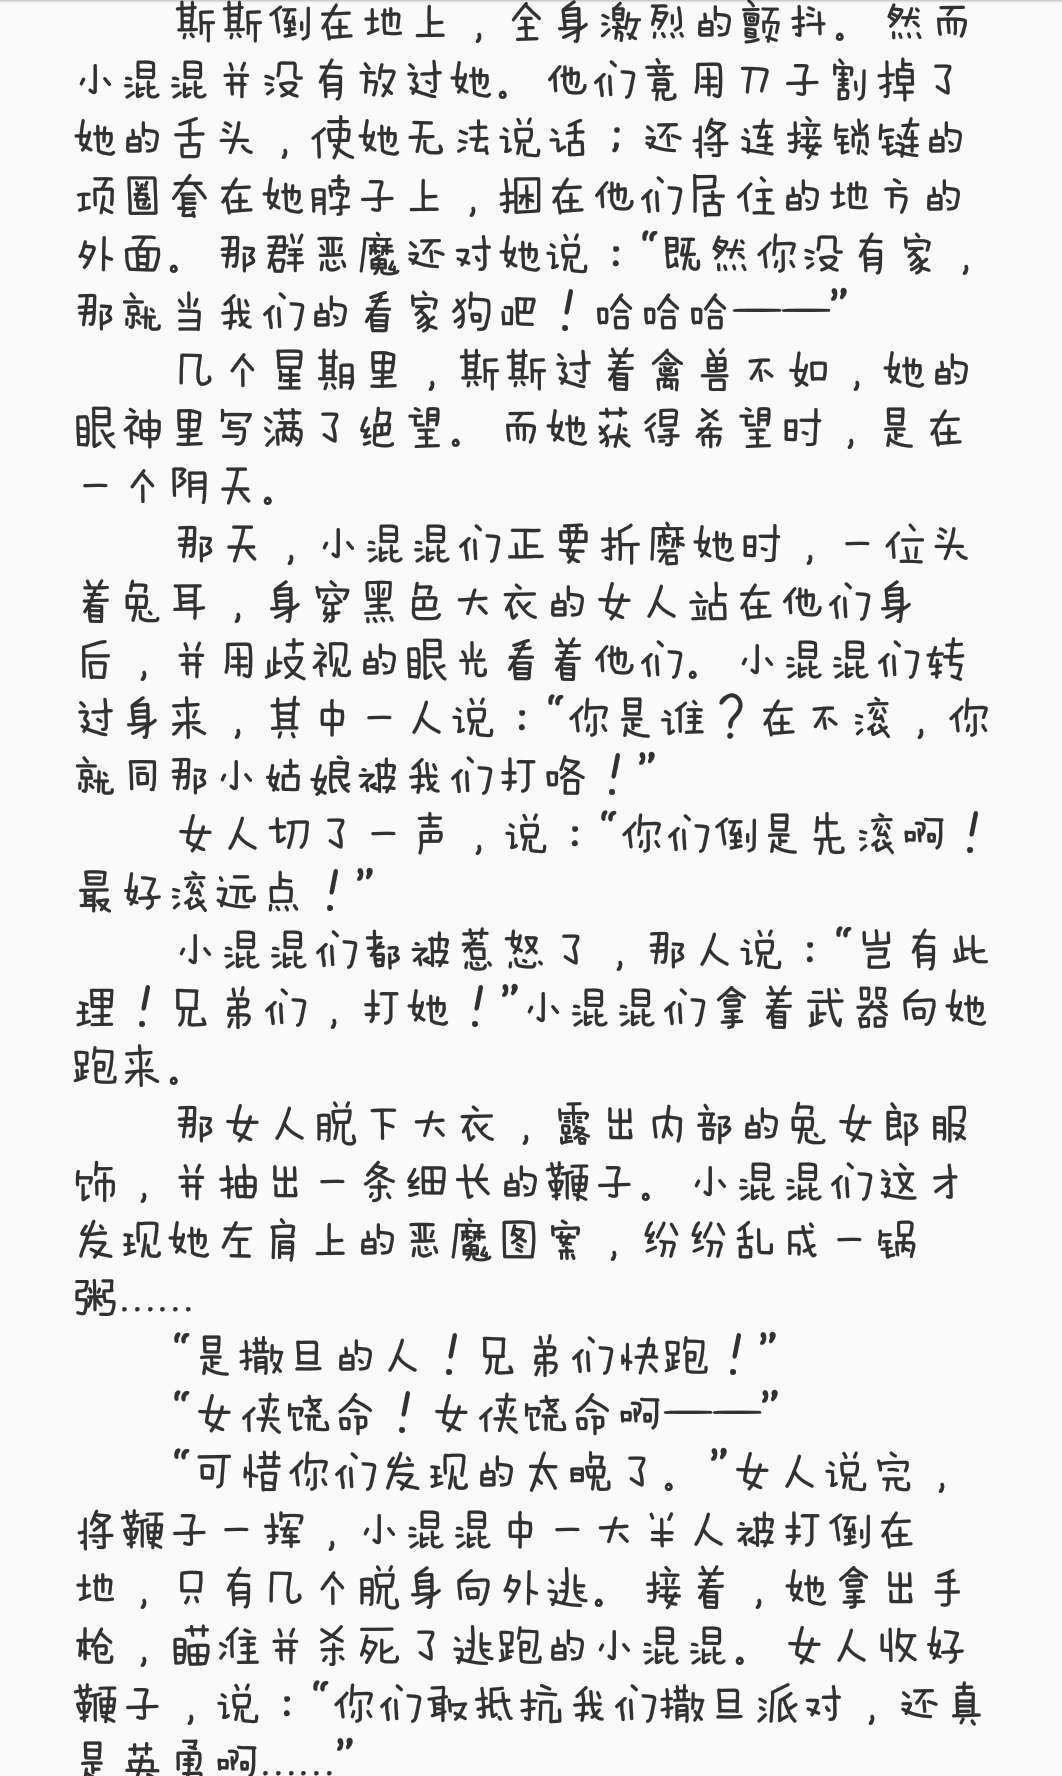 斯斯倒在地上，全身激烈的颤抖。然而
小混混并没有放过她。他们竟用刀子割掉了
她的舌头，使她无法说话；还将连接锁链的
项圈套在她脖子上，捆在他们居住的地方的
外面。那群恶魔还对她说：“既然你没有家，
那就当我们的看家狗吧！哈哈哈——”
几个星期里，斯斯过着禽兽不如，她的
眼神里写满了绝望。而她获得希望时，是在
一个阴天。
那天，小混混们正要折磨她时，一位头
着兔耳，身穿黑色大衣的女人站在他们身
后，并用歧视的眼光看着他们。小混混们转
过身来，其中一人说：“你是谁？在不滚，你
就同那小姑娘被我们打咯！”
女人切了一声，说：“你们倒是先滚啊！
最好滚远点！”
小混混们都被惹怒了，那人说：“岂有此
理！兄弟们，打她！”小混混们拿着武器向她
跑来。
那女人脱下大衣，露出内部的兔女郎服
饰，并抽出一条细长的鞭子。小混混们这才
发现她左肩上的恶魔图案，纷纷乱成一锅
粥……
“是撒旦的人！兄弟们快跑！”
“女侠饶命！女侠饶命啊——”
“可惜你们发现的太晚了。”女人说完，
将鞭子一挥，小混混中一大半人被打倒在
地，只有几个脱身向外逃。接着，她拿出手
枪，瞄准并杀死了逃跑的小混混。女人收好
鞭子，说：“你们敢抵抗我们撒旦派对，还真
是英勇啊……”